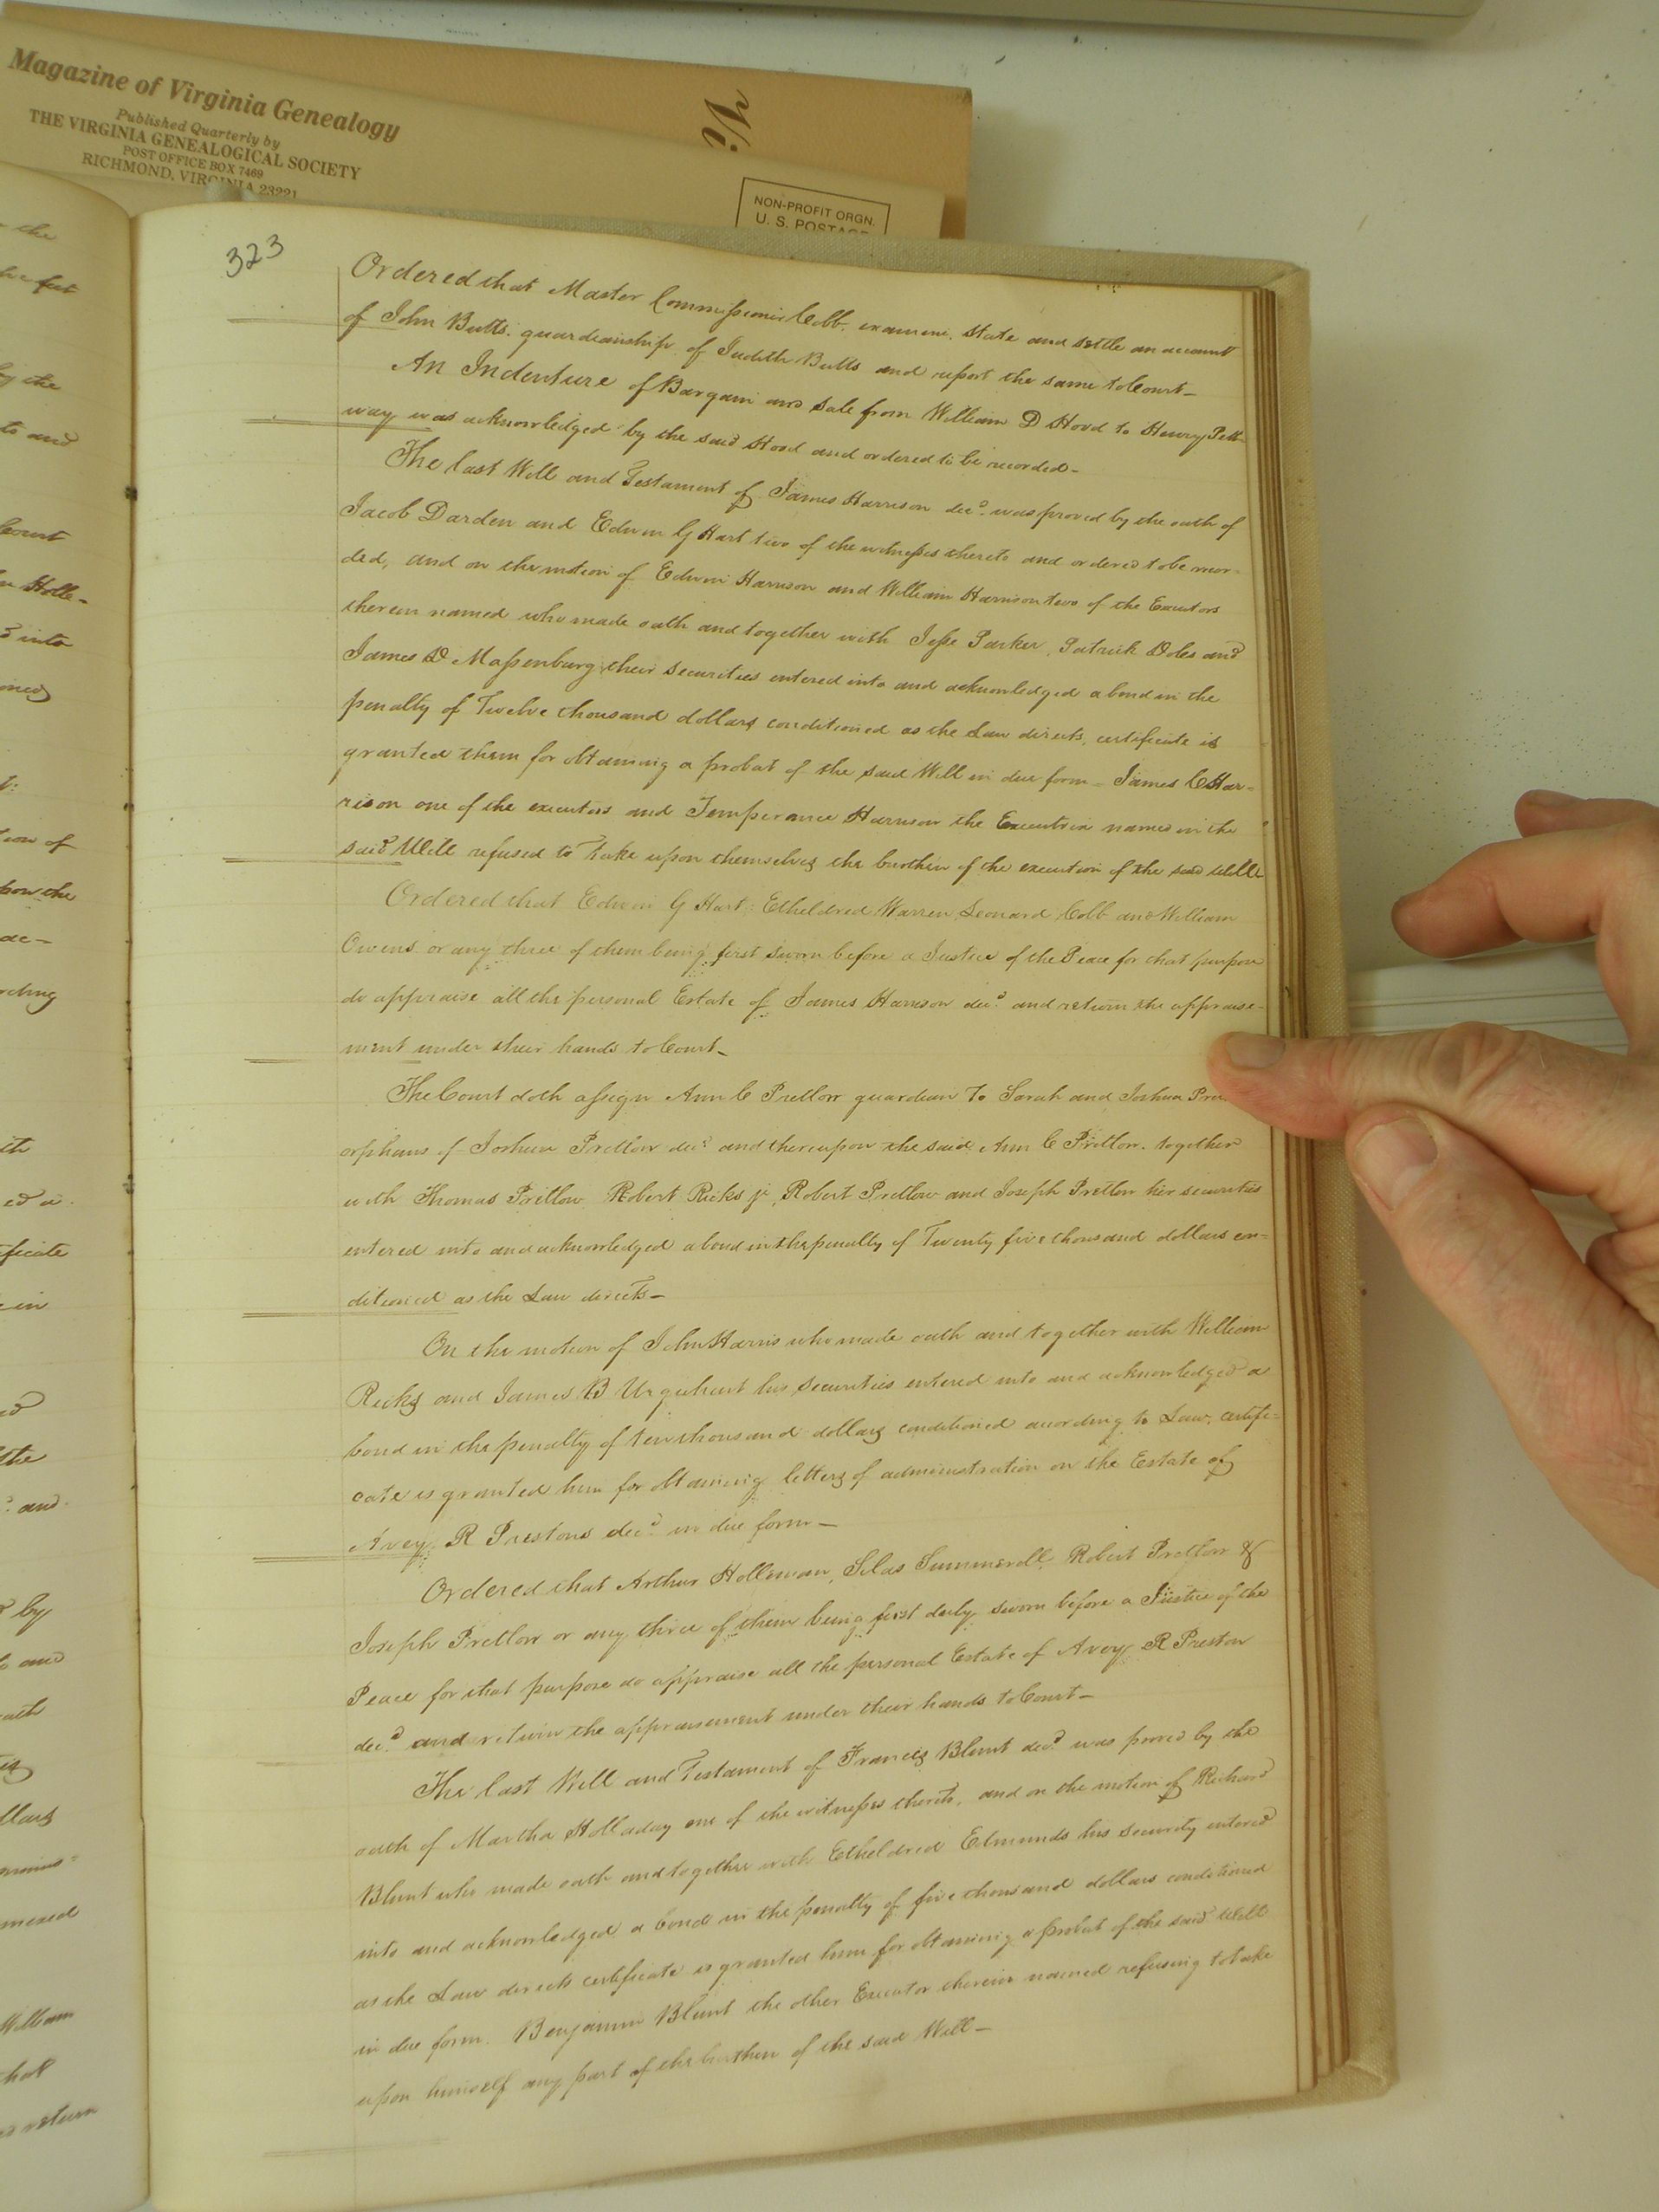 Magazine of Virginia Genealogy
Published Quarterly by
THE VIRGINIA GENEALOGICAL SOCIETY
POST OFFICE BOX 7469
RICHMOND, VIRGINIA 23221
NON-PROFIT ORGN.
U. S. POSTAGE
323
Ordered that Master Commissioner Cobb, examine, state and settle an account
of John Butts. guardianship of Judith Butts and report the same to Court_
An Indenture of Bargain and Sale from William D Hood to Henry Pett-
way was acknowledged by the said Hood and ordered to be recorded_
The last Will and Testament of James Harrison decd. was proved by the oath of
Jacob Darden and Edwin G Hart two of the witnesses thereto and ordered to be recor-
ded, and on the motion of Edwin Harrison and William Harrison two of the Executors
therein named who made oath and together with Jesse Parker, Patrick Doles and
James D Massenburg their securities entered into and acknowledged a bond in the
penalty of Twelve thousand dollars conditioned as the Law directs, certificate is
granted them for obtaining a probat of the said Will in due form_ James C Har-
rison one of the executors and Temperance Harrison the Executrix named in the
said Will refused to take upon themselves the burthen of the execution of the said Will_
Ordered that Edwin G Hart, Etheldred Warren, Leonard Cobb and William
Owens or any three of them being first sworn before a Justice of the Peace for that purpose
do appraise all the personal Estate of James Harrison decd. and return the appraise-
ment under their hands to Court_
The Court doth assign Ann C Pretlow guardian to Sarah and Joshua
orphans of Joshua Pretlow decd. and thereupon the said Ann C Pretlow. together
with Thomas Pretlow, Robert Ricks jr, Robert Pretlow and Joseph Pretlow her securities
entered into and acknowledged a bond in the penalty of Twenty five thousand dollars con-
ditioned as the Law directs_
On the motion of John Harris who made oath and together with William
Ricks and James B Urquhart his securities entered into and acknowledged a
bond in the penalty of ten thousand dollars conditioned according to Law, certifi-
cate is granted him for obtaining letters of administration on the Estate of
Avey R Prestons decd. in due form_
Ordered that Arthur Holleman, Silas Summerell, Robert Pretlow &
Joseph Pretlow or any three of them being first duly sworn before a Justice of the
Peace for that purpose do appraise all the personal Estate of Avey R Preston
decd. and return the appraisement under their hands to Court_
The last Will and Testament of Francis Blunt decd. was proved by the
oath of Martha Holladay one of the witnesses thereto, and on the motion of Richard
Blunt who made oath and together with Etheldred Edmunds his security entered
into and acknowledged a bond in the penalty of five thousand dollars conditioned
as the Law directs certificate is granted him for obtaining a probat of the said Will
in due form. Benjamin Blunt the other Executor therein named refusing to take
upon himself any part of the burthen of the said Will_